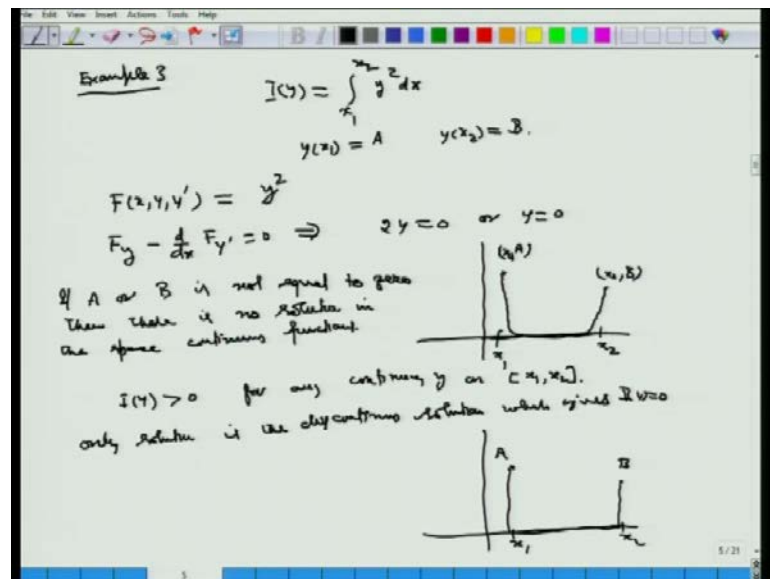 File Edit View Insert Actions Tools Help
Example 3
I(y) = ∫_{x_1}^{x_2} y^2 dx
y(x_1) = A y(x_2) = B.
F(x, y, y') = y^2
F_y - d/dx F_{y'} = 0 ⇒ 2y = 0 or y = 0
(x_1, A) (x_2, B)
x_1 x_2
If A or B is not equal to zero
then there is no solution in
the space continuous functions.
I(y) > 0 for any continuous y on [x_1, x_2].
only solution is the discontinuous solution which gives I(y)=0
A B
x_1 x_2
5/21
5